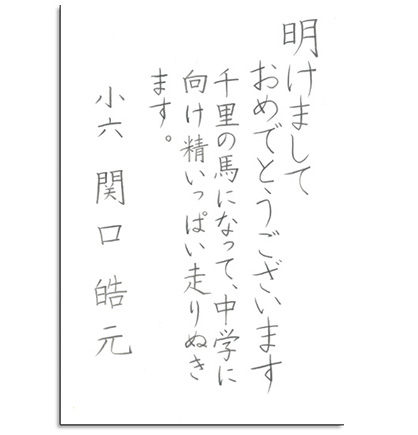 明けまして
おめでとうございます
千里の馬になって、中学に
向け精いっぱい走りぬき
ます。
小六 関口皓元